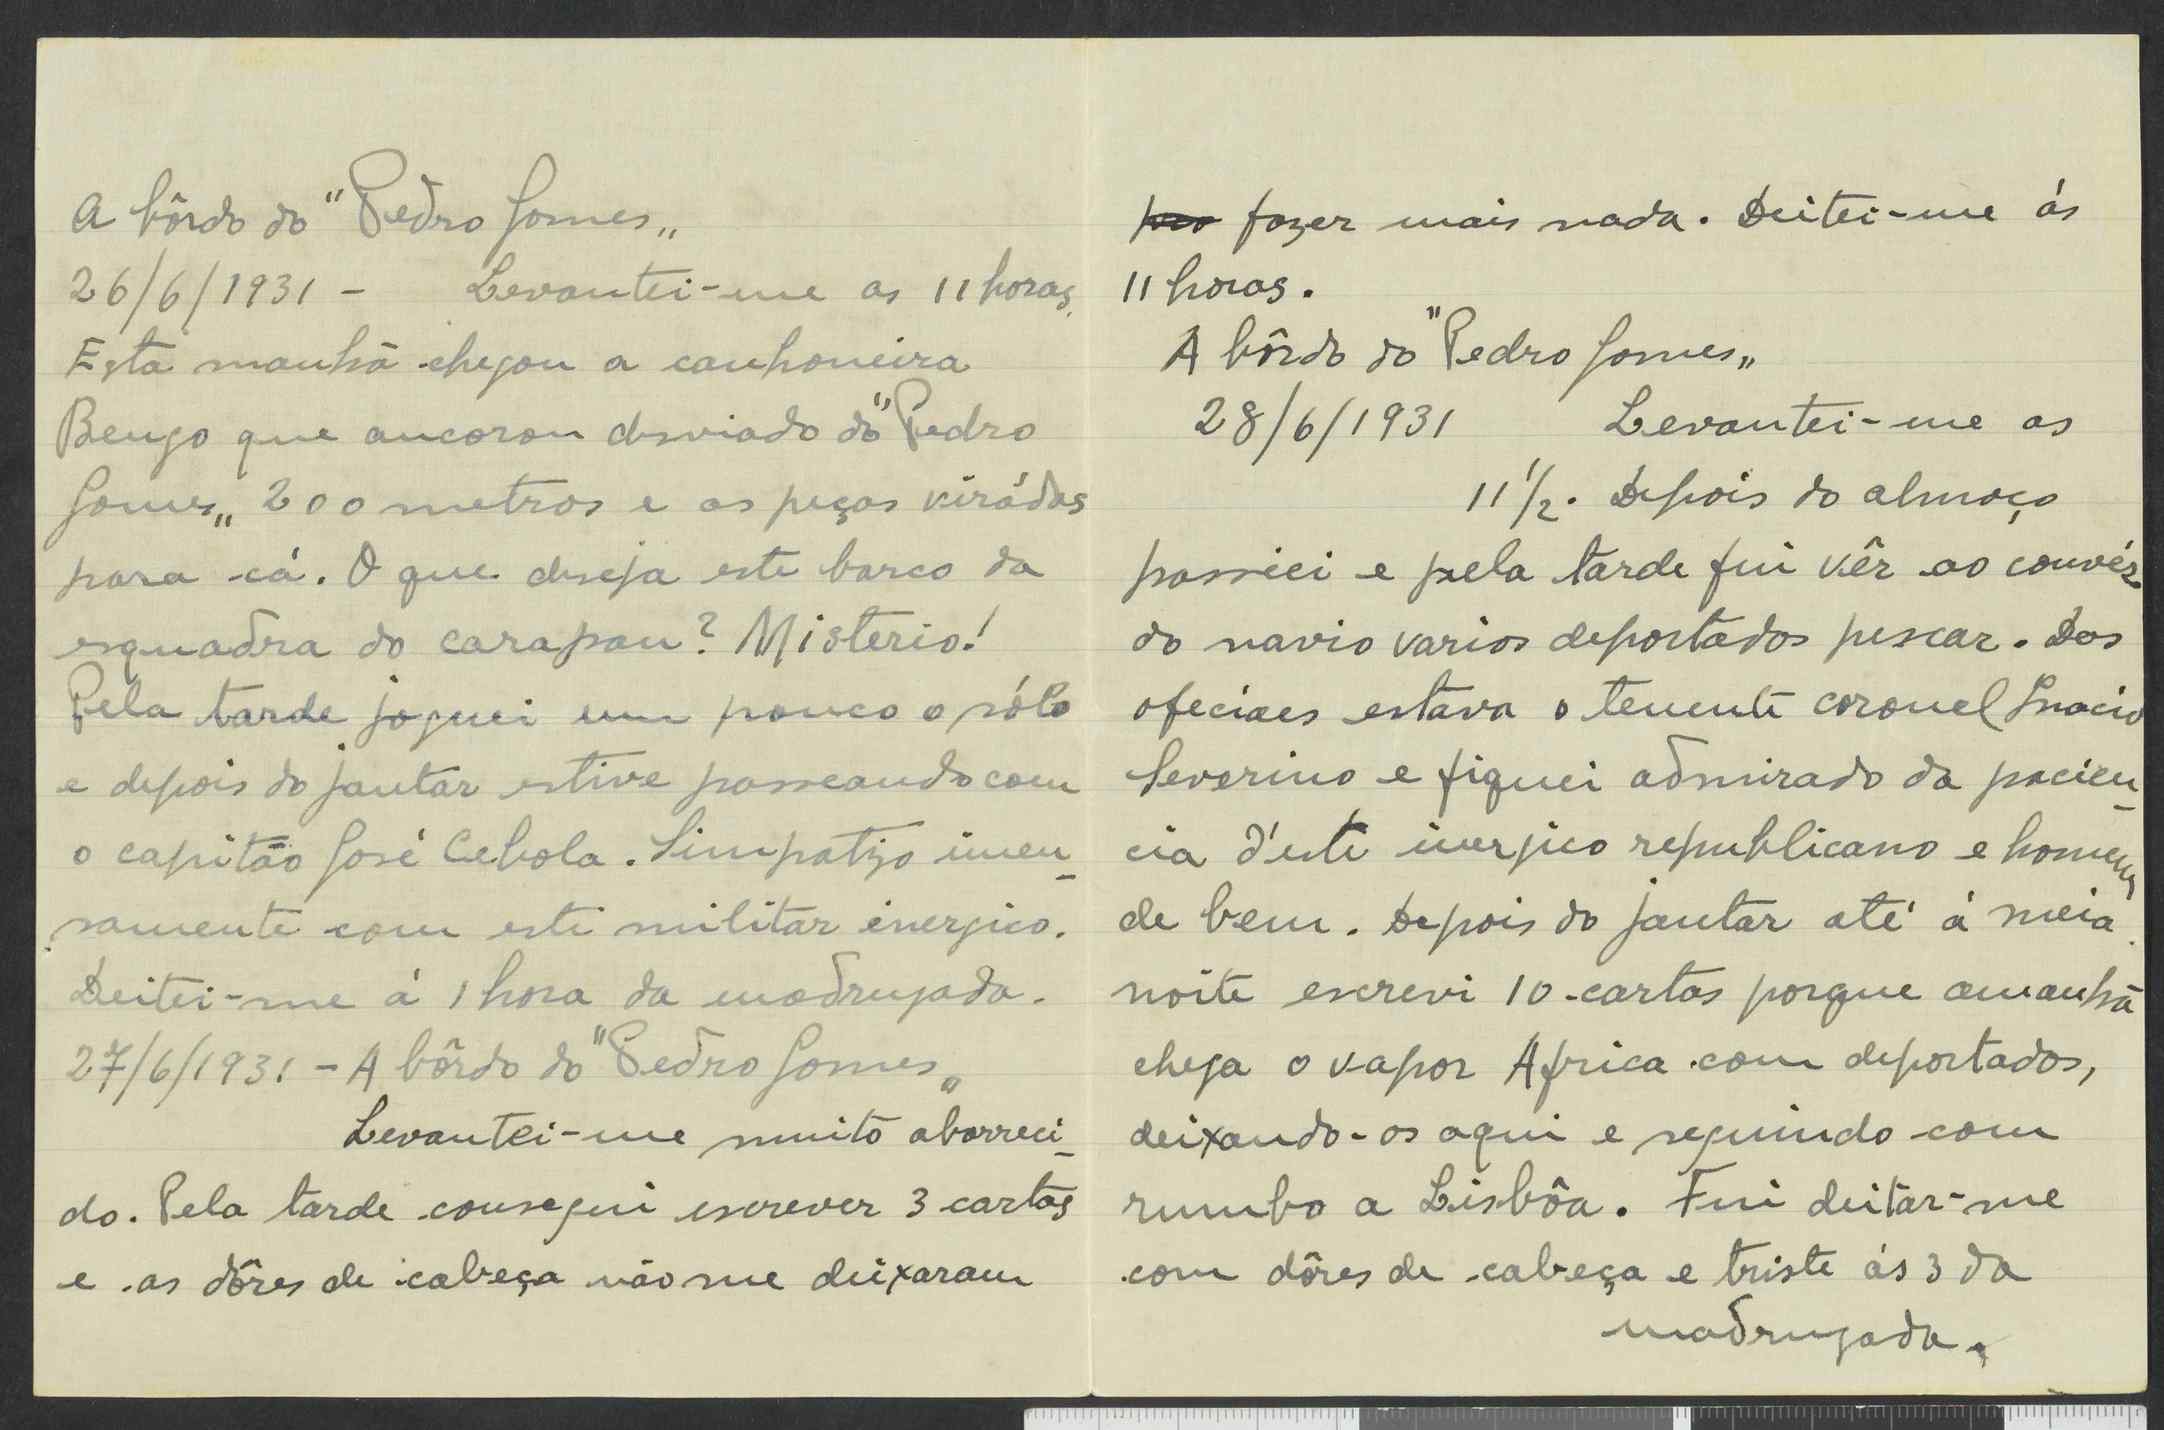 A bôrdo do "Pedro Gomes„
26/6/1931 - Levantei-me as 11 horas.
Esta manhã chegou a canhoneira
Bengo que ancorou desviado do "Pedro
Gomes„ 200 metros e as peças virádas
para cá. O que deseja este barco da
esquadra do carapau? Misterio!
Pela tarde joguei um pouco o sólo
e depois do jantar estive passeando com
o capitão José Cebola. Simpatizo imen-
samente com este militar énergico.
Deitei-me á 1 hora da madrugada.
27/6/1931 - A bôrdo do "Pedro Gomes„
Levantei-me muito aborreci-
do. Pela tarde consegui escrever 3 cartas
e as dôres de cabeça não me deixaram
fazer mais nada. Deitei-me ás
11 horas.
A bôrdo do "Pedro Gomes„
28/6/1931 Levantei-me as
11 1/2. Depois do almoço
passiei e pela tarde fui vêr ao convéz
do navio varios deportados pescar. Dos
ofeciaes estava o tenente coronel Inacio
Severino e fiquei admirado da pacien-
cia d'este inerjico republicano e homem
de bem. Depois do jantar até á meia
noite escrevi 10 cartas porque amanhã
chega o vapor Africa com deportados,
deixando-os aqui e seguindo com
rumbo a Lisbôa. Fui deitar-me
com dôres de cabeça e triste ás 3 da
madrugada.